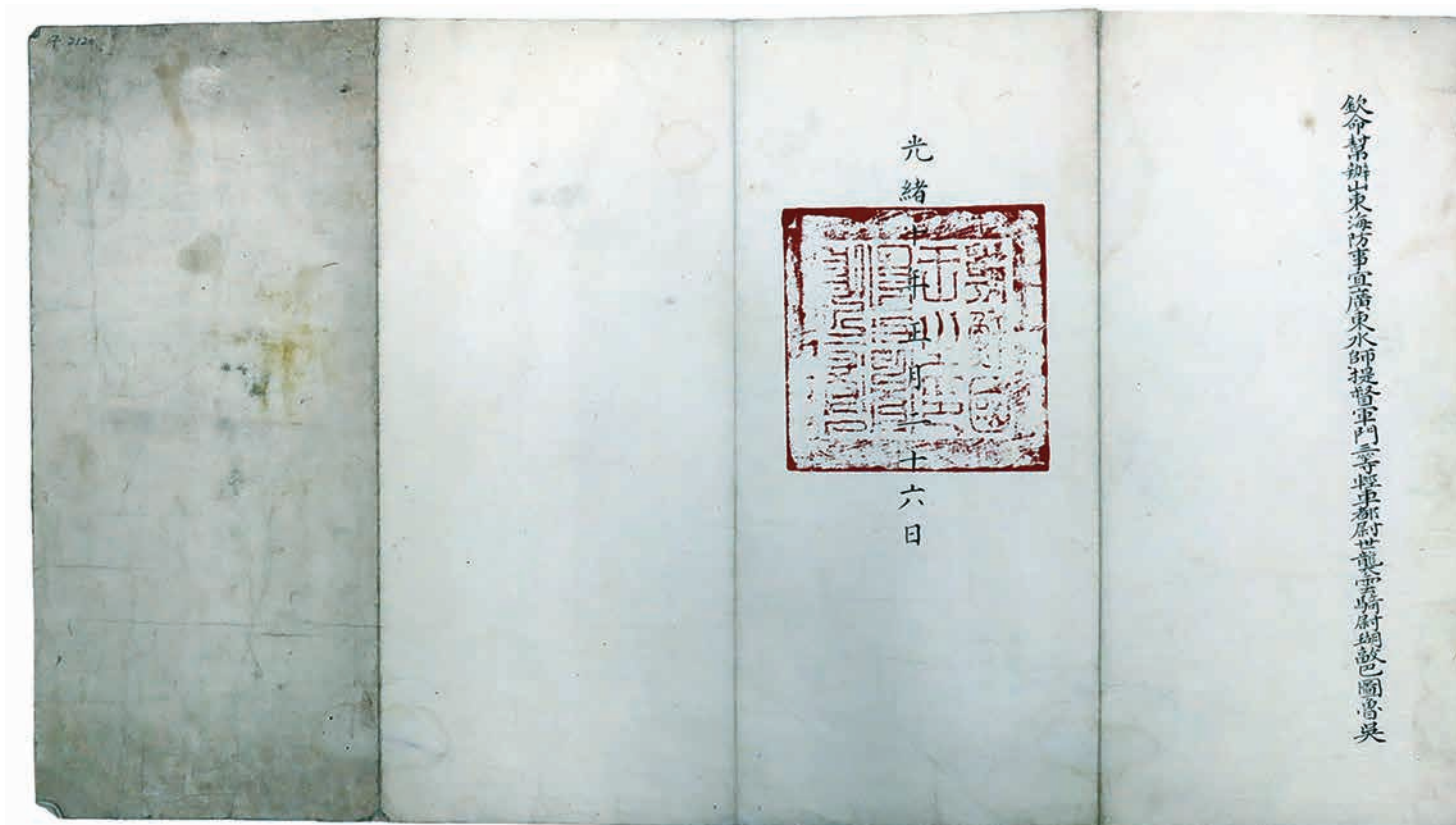 欽命幫辦山東海防事宜廣東水師提督軍門三等輕車都尉世襲雲騎尉瑚敢巴圖魯吳
光緒十年正月二十六日